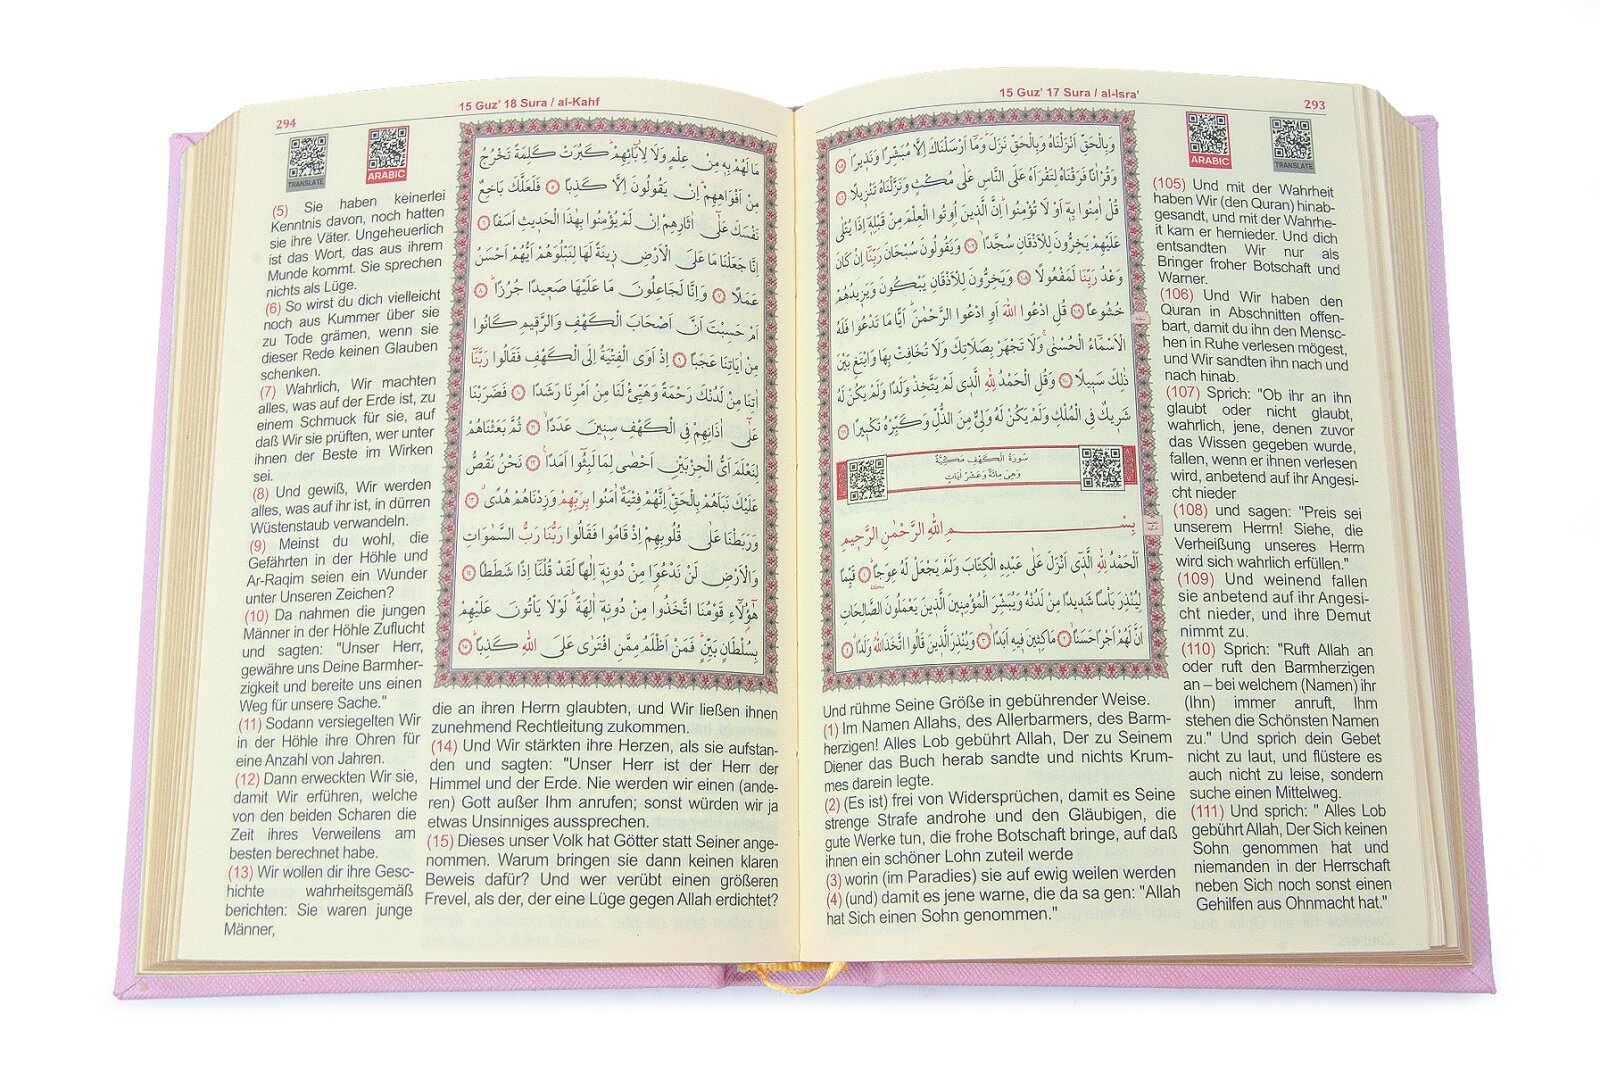 15 Guz' 17 Sura / al-Isra'
293
ARABIC
TRANSLATE
وَبِالْحَقِّ اَنْزَلْنَاهُ وَبِالْحَقِّ نَزَلَ وَمَا اَرْسَلْنَاكَ اِلَّا مُبَشِّرًا وَنَذِيرًا ﴿١٠٥﴾
وَقُرْاٰنًا فَرَقْنَاهُ لِتَقْرَاَهُ عَلَى النَّاسِ عَلٰى مُكْثٍ وَنَزَّلْنَاهُ تَنْزِيلًا ﴿١٠٦﴾
قُلْ اٰمِنُوا بِهٖٓ اَوْ لَا تُؤْمِنُوا اِنَّ الَّذِينَ اُوتُوا الْعِلْمَ مِنْ قَبْلِهٖٓ اِذَا يُتْلٰى
عَلَيْهِمْ يَخِرُّونَ لِلْاَذْقَانِ سُجَّدًا ﴿١٠٧﴾ وَيَقُولُونَ سُبْحَانَ رَبِّنَٓا اِنْ كَانَ
وَعْدُ رَبِّنَا لَمَفْعُولًا ﴿١٠٨﴾ وَيَخِرُّونَ لِلْاَذْقَانِ يَبْكُونَ وَيَزِيدُهُمْ
خُشُوعًا ﴿١٠٩﴾ قُلِ ادْعُوا اللّٰهَ اَوِ ادْعُوا الرَّحْمٰنَ اَيًّا مَا تَدْعُوا فَلَهُ
الْاَسْمَٓاءُ الْحُسْنٰى وَلَا تَجْهَرْ بِصَلَاتِكَ وَلَا تُخَافِتْ بِهَا وَابْتَغِ بَيْنَ
ذٰلِكَ سَبِيلًا ﴿١١٠﴾ وَقُلِ الْحَمْدُ لِلّٰهِ الَّذِي لَمْ يَتَّخِذْ وَلَدًا وَلَمْ يَكُنْ لَهُ
شَرِيكٌ فِي الْمُلْكِ وَلَمْ يَكُنْ لَهُ وَلِيٌّ مِنَ الذُّلِّ وَكَبِّرْهُ تَكْبِيرًا ﴿١١١﴾
سُورَةُ الْكَهْفِ مَكِّيَّةٌ
وَهِيَ مِائَةٌ وَعَشْرُ اٰيَاتٍ
بِسْمِ اللّٰهِ الرَّحْمٰنِ الرَّحِيمِ
اَلْحَمْدُ لِلّٰهِ الَّذٖٓي اَنْزَلَ عَلٰى عَبْدِهِ الْكِتَابَ وَلَمْ يَجْعَلْ لَهُ عِوَجًا ﴿١﴾ قَيِّمًا
لِيُنْذِرَ بَاْسًا شَدِيدًا مِنْ لَدُنْهُ وَيُبَشِّرَ الْمُؤْمِنِينَ الَّذِينَ يَعْمَلُونَ الصَّالِحَاتِ
اَنَّ لَهُمْ اَجْرًا حَسَنًا ﴿٢﴾ مَاكِثِينَ فِيهِ اَبَدًا ﴿٣﴾ وَيُنْذِرَ الَّذِينَ قَالُوا اتَّخَذَ اللّٰهُ وَلَدًا ﴿٤﴾
(105) Und mit der Wahrheit
haben Wir (den Quran) hinab-
gesandt, und mit der Wahrhe-
it kam er hernieder. Und dich
entsandten Wir nur als
Bringer froher Botschaft und
Warner.
(106) Und Wir haben den
Quran in Abschnitten offen-
bart, damit du ihn den Mensc-
hen in Ruhe verlesen mögest,
und Wir sandten ihn nach und
nach hinab.
(107) Sprich: "Ob ihr an ihn
glaubt oder nicht glaubt,
wahrlich, jene, denen zuvor
das Wissen gegeben wurde,
fallen, wenn er ihnen verlesen
wird, anbetend auf ihr Angesi-
cht nieder
(108) und sagen: "Preis sei
unserem Herrn! Siehe, die
Verheißung unseres Herrn
wird sich wahrlich erfüllen."
(109) Und weinend fallen
sie anbetend auf ihr Angesi-
cht nieder, und ihre Demut
nimmt zu.
(110) Sprich: "Ruft Allah an
oder ruft den Barmherzigen
an – bei welchem (Namen) ihr
(Ihn) immer anruft, Ihm
stehen die Schönsten Namen
zu." Und sprich dein Gebet
nicht zu laut, und flüstere es
auch nicht zu leise, sondern
suche einen Mittelweg.
(111) Und sprich: " Alles Lob
gebührt Allah, Der Sich keinen
Sohn genommen hat und
niemanden in der Herrschaft
neben Sich noch sonst einen
Gehilfen aus Ohnmacht hat."
Und rühme Seine Größe in gebührender Weise.
(1) Im Namen Allahs, des Allerbarmers, des Barm-
herzigen! Alles Lob gebührt Allah, Der zu Seinem
Diener das Buch herab sandte und nichts Krum-
mes darein legte.
(2) (Es ist) frei von Widersprüchen, damit es Seine
strenge Strafe androhe und den Gläubigen, die
gute Werke tun, die frohe Botschaft bringe, auf daß
ihnen ein schöner Lohn zuteil werde
(3) worin (im Paradies) sie auf ewig weilen werden
(4) (und) damit es jene warne, die da sa gen: "Allah
hat Sich einen Sohn genommen."
15 Guz' 18 Sura / al-Kahf
294
TRANSLATE
ARABIC
مَا لَهُمْ بِهٖ مِنْ عِلْمٍ وَلَا لِاٰبَٓائِهِمْ كَبُرَتْ كَلِمَةً تَخْرُجُ
مِنْ اَفْوَاهِهِمْ اِنْ يَقُولُونَ اِلَّا كَذِبًا ﴿٥﴾ فَلَعَلَّكَ بَاخِعٌ
نَفْسَكَ عَلٰٓى اٰثَارِهِمْ اِنْ لَمْ يُؤْمِنُوا بِهٰذَا الْحَدِيثِ اَسَفًا ﴿٦﴾
اِنَّا جَعَلْنَا مَا عَلَى الْاَرْضِ زِينَةً لَهَا لِنَبْلُوَهُمْ اَيُّهُمْ اَحْسَنُ
عَمَلًا ﴿٧﴾ وَاِنَّا لَجَاعِلُونَ مَا عَلَيْهَا صَعِيدًا جُرُزًا ﴿٨﴾
اَمْ حَسِبْتَ اَنَّ اَصْحَابَ الْكَهْفِ وَالرَّقِيمِ كَانُوا
مِنْ اٰيَاتِنَا عَجَبًا ﴿٩﴾ اِذْ اَوَى الْفِتْيَةُ اِلَى الْكَهْفِ فَقَالُوا رَبَّنَٓا
اٰتِنَا مِنْ لَدُنْكَ رَحْمَةً وَهَيِّئْ لَنَا مِنْ اَمْرِنَا رَشَدًا ﴿١٠﴾ فَضَرَبْنَا
عَلٰٓى اٰذَانِهِمْ فِي الْكَهْفِ سِنِينَ عَدَدًا ﴿١١﴾ ثُمَّ بَعَثْنَاهُمْ
لِنَعْلَمَ اَيُّ الْحِزْبَيْنِ اَحْصٰى لِمَا لَبِثُٓوا اَمَدًا ﴿١٢﴾ نَحْنُ نَقُصُّ
عَلَيْكَ نَبَاَهُمْ بِالْحَقِّ اِنَّهُمْ فِتْيَةٌ اٰمَنُوا بِرَبِّهِمْ وَزِدْنَاهُمْ هُدًى ﴿١٣﴾
وَرَبَطْنَا عَلٰى قُلُوبِهِمْ اِذْ قَامُوا فَقَالُوا رَبُّنَا رَبُّ السَّمٰوَاتِ
وَالْاَرْضِ لَنْ نَدْعُوَا مِنْ دُونِهٖٓ اِلٰهًا لَقَدْ قُلْنَٓا اِذًا شَطَطًا ﴿١٤﴾
هٰٓؤُلَٓاءِ قَوْمُنَا اتَّخَذُوا مِنْ دُونِهٖٓ اٰلِهَةً لَوْلَا يَاْتُونَ عَلَيْهِمْ
بِسُلْطَانٍ بَيِّنٍ فَمَنْ اَظْلَمُ مِمَّنِ افْتَرٰى عَلَى اللّٰهِ كَذِبًا ﴿١٥﴾
(5) Sie haben keinerlei
Kenntnis davon, noch hatten
sie ihre Väter. Ungeheuerlich
ist das Wort, das aus ihrem
Munde kommt. Sie sprechen
nichts als Lüge.
(6) So wirst du dich vielleicht
noch aus Kummer über sie
zu Tode grämen, wenn sie
dieser Rede keinen Glauben
schenken.
(7) Wahrlich, Wir machten
alles, was auf der Erde ist, zu
einem Schmuck für sie, auf
daß Wir sie prüften, wer unter
ihnen der Beste im Wirken
sei.
(8) Und gewiß, Wir werden
alles, was auf ihr ist, in dürren
Wüstenstaub verwandeln.
(9) Meinst du wohl, die
Gefährten in der Höhle und
Ar-Raqim seien ein Wunder
unter Unseren Zeichen?
(10) Da nahmen die jungen
Männer in der Höhle Zuflucht
und sagten: "Unser Herr,
gewähre uns Deine Barmher-
zigkeit und bereite uns einen
Weg für unsere Sache."
(11) Sodann versiegelten Wir
in der Höhle ihre Ohren für
eine Anzahl von Jahren.
(12) Dann erweckten Wir sie,
damit Wir erführen, welche
von den beiden Scharen die
Zeit ihres Verweilens am
besten berechnet habe.
(13) Wir wollen dir ihre Gesc-
hichte wahrheitsgemäß
berichten: Sie waren junge
Männer,
die an ihren Herrn glaubten, und Wir ließen ihnen
zunehmend Rechtleitung zukommen.
(14) Und Wir stärkten ihre Herzen, als sie aufstan-
den und sagten: "Unser Herr ist der Herr der
Himmel und der Erde. Nie werden wir einen (ande-
ren) Gott außer Ihm anrufen; sonst würden wir ja
etwas Unsinniges aussprechen.
(15) Dieses unser Volk hat Götter statt Seiner ange-
nommen. Warum bringen sie dann keinen klaren
Beweis dafür? Und wer verübt einen größeren
Frevel, als der, der eine Lüge gegen Allah erdichtet?